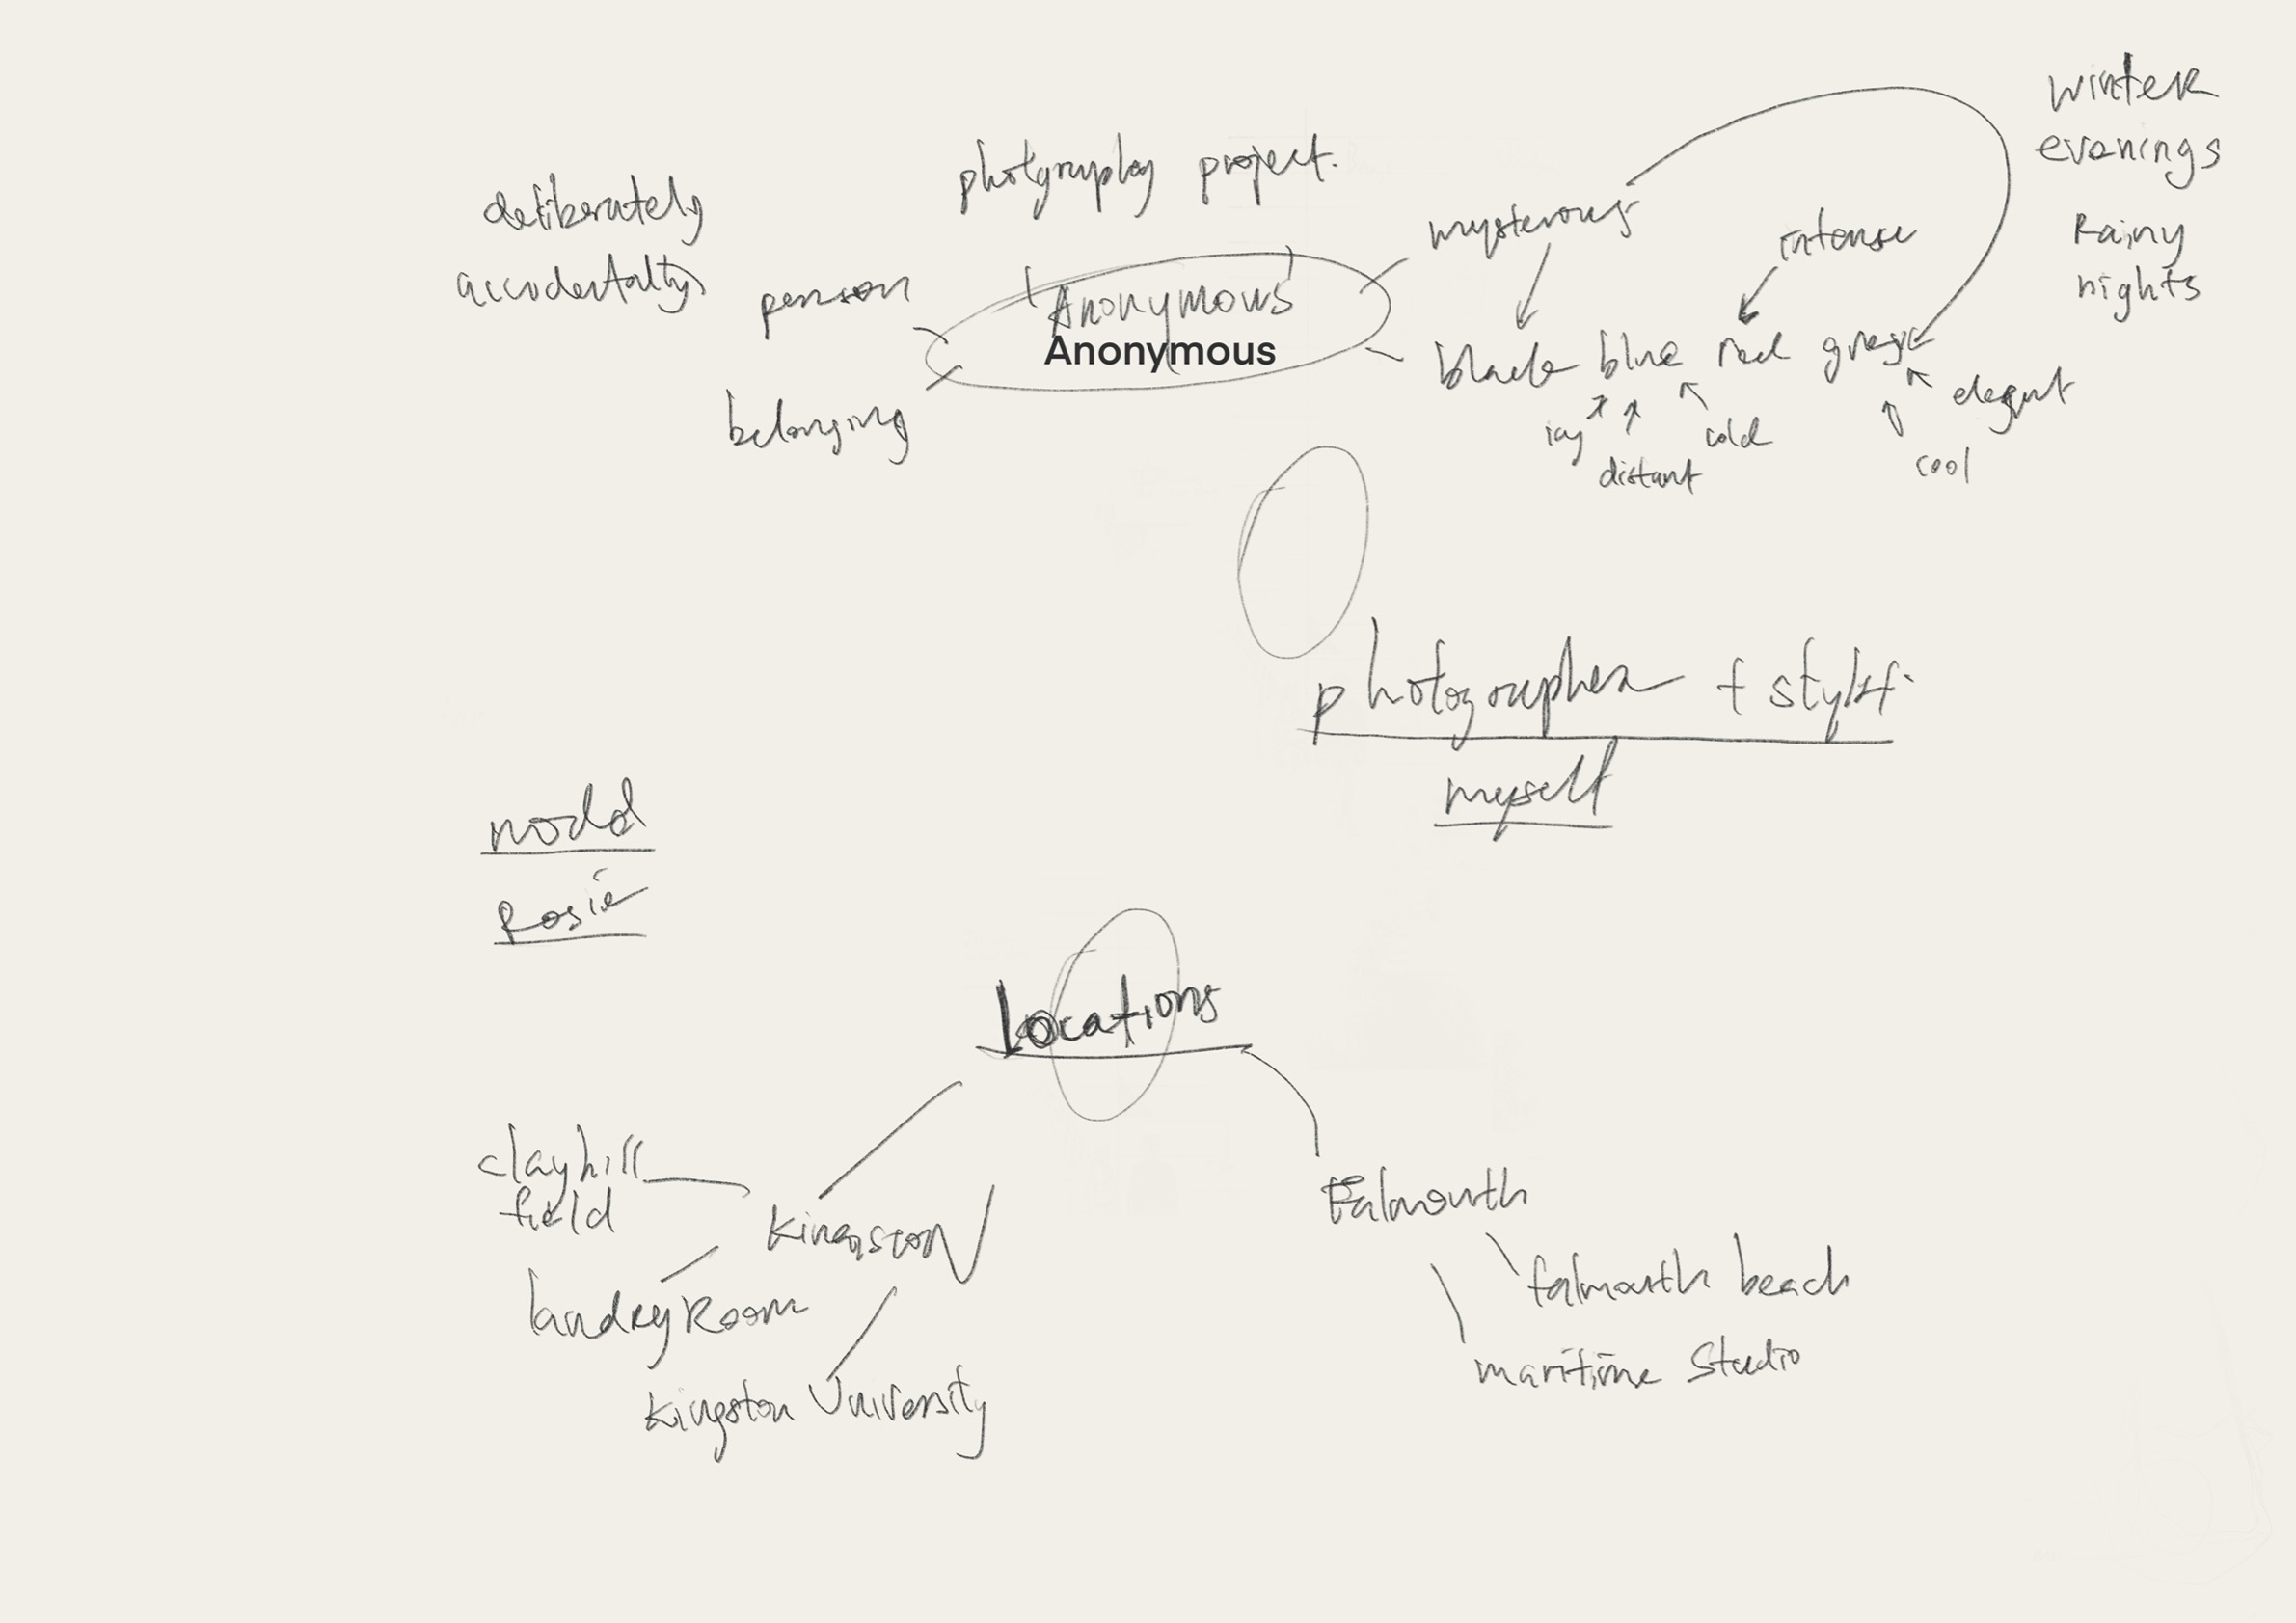 winter
evenings
Rainy
nights
photgraphy project.
deliberately
accidentally
person
belonging
Anonymous
Anonymous
mysterous
intense
black blue red grey
icy
distant
cold
cool
elegant
photographer + stylist.
myself
model
Rosie
Locations
clayhill
field
Kingston
landry Room
Kingston University
Falmouth
falmouth beach
maritime Studio